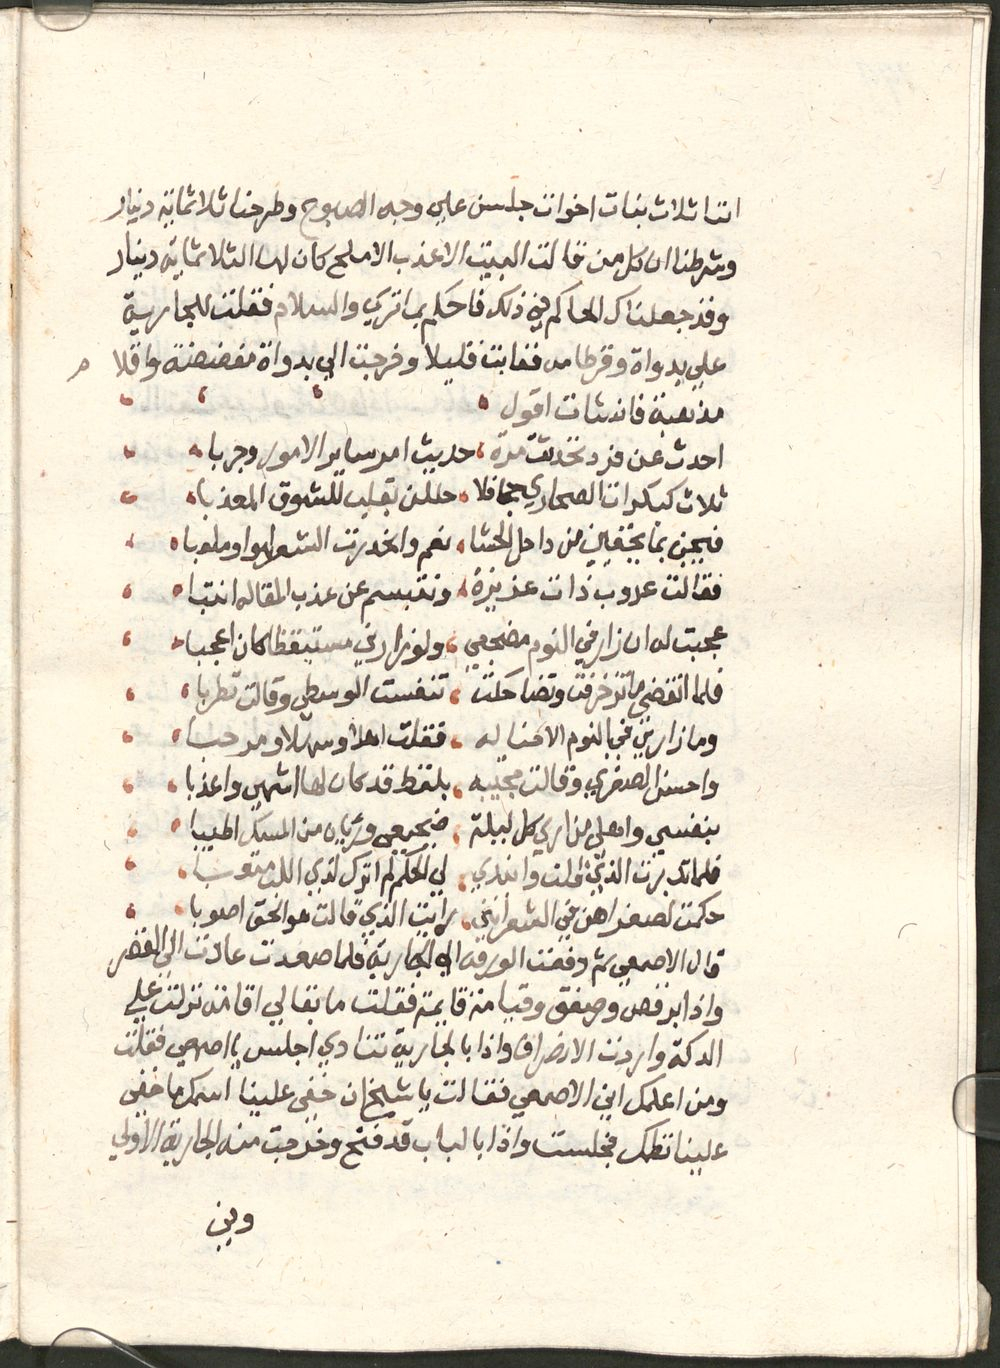 اننا ثلاث بنات اخوات جلسن علي وجه الصبوح وطرحنا ثلاثماية دينار
وشرطنا ان كل من قالت البيت الاعذب الاملح كان لها الثلاثماية دينار
وقد جعلناك الحاكم في ذلك فاحكم بما تري والسلام فقلت للجارية
علي بدواة وقرطاس فغابت قليلا وخرجت الي بدواة مفضضة واقلام
مذهبة فانشات اقول
احدث عن خرد تحدثت مرة حديث امر ساير الامور وجربا
ثلاث كبكرات الصحاري جحافلا حللن بقلب للشوق المعذبا
فبحن بما يخفين من داخل الحشا نعم واتخذت الشعر لهوا وملعبا
فقالت عروب ذات عز غريرة وتبسم عن عذب المقاله اشنبا
عجبت له ان زار في النوم مضجعي ولو زارني مستيقظا كان اعجبا
فلما انقضي ما زخرفت وتضاحكت تنفست الوسطي وقالت تطربا
وما زارني في النوم الا خياله فقلت اهلا وسهلا ومرحبا
واحسنت الصغري وقالت مجيبه بلفظ قد كان لها اشهي واعذبا
بنفسي واهلي من اري كل ليلة ضجيعي ورياه من المسك اطيبا
فلما تدبرت الذي قلت وانبري لي الحكم لم اترك لذي اللب متعبا
حكمت لصغراهن في الشعر انني رايت الذي قالت هو الحق اصوبا
قال الاصمعي ثم دفعت الورقه الي الجارية فلما صعدت عادت الي القصر
واذا برقص وصفق وقيامة قايمة فقلت ما بقالي اقامة نزلت علي
الدكة واردت الانصراف واذا بالجارية تنادي اجلس يا اصمعي فقلت
ومن اعلمك اني الاصمعي فقالت يا شيخ ان خفي علينا اسمك ما خفي
علينا نظمك فجلست واذا بالباب قد فتح وخرجت منه الجارية الاولي
وفي